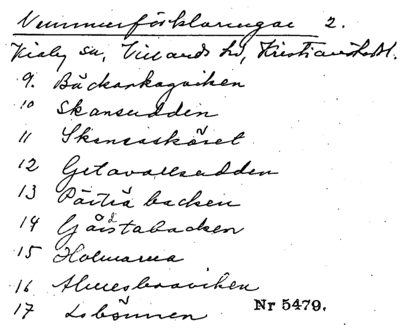 Nummerförklaringar 2.
Kiaby sn, Villands hd, Kristianstad l.
9. Bäckarkagviken
10 Skansudden
11 Skansaskäret
12 Getavallsudden
13 Pärlrä backen
14 Gårstabacken
15 Holmarna
16 Almesboaviken
17 Lobönnen
Nr 5479.